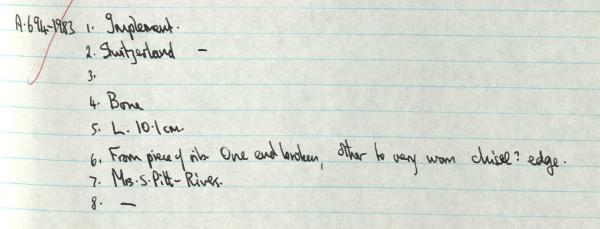 A.694-1983 1. Implement.
2. Switzerland -
3.
4. Bone
5. L. 10.1cm
6. From piece of rib. One end broken, other to very worn chisel? edge.
7. Mrs. S. Pitt-Rivers.
8. —